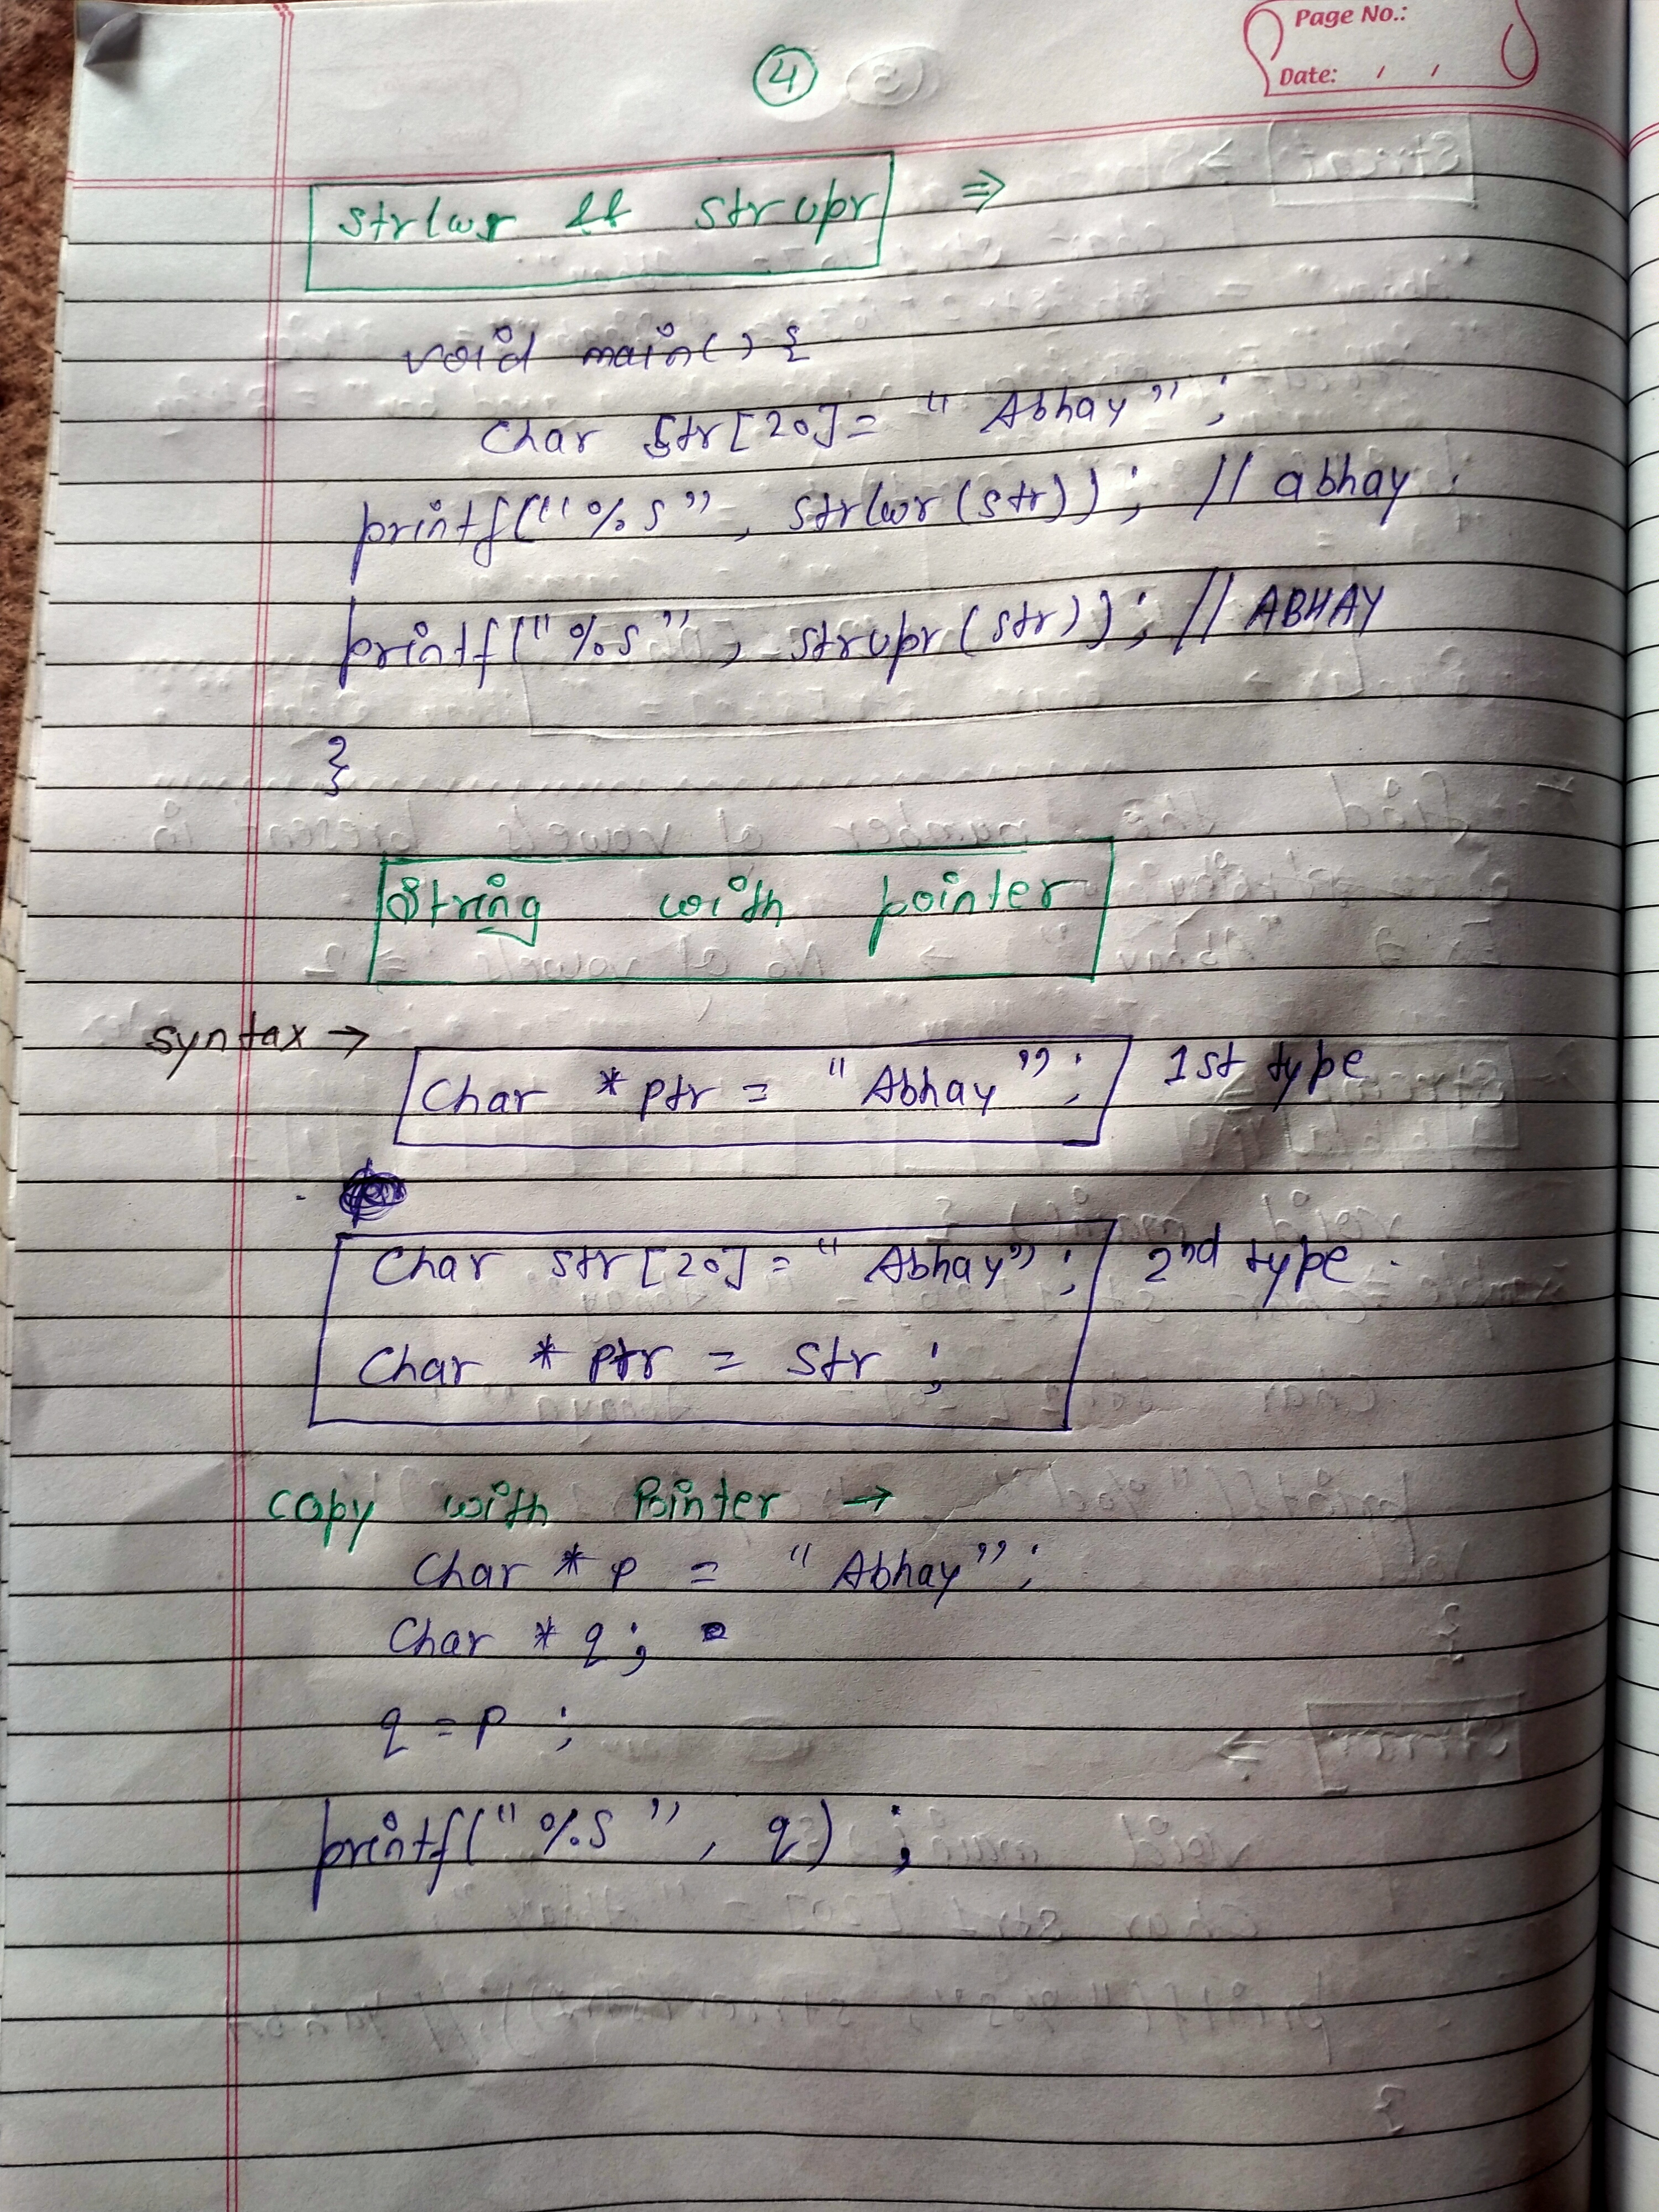 Page No.:
Date: / /
4
strlwr && strupr ⇒
void main() {
char str[20] = "Abhay";
printf("%s", strlwr(str)); // abhay
printf("%s", strupr(str)); // ABHAY
}
String with pointer
syntax →
char *ptr = "Abhay"; 1st type
char str[20] = "Abhay"; 2nd type.
char *ptr = str;
copy with Pointer →
char *p = "Abhay";
char *q;
q = p;
printf("%s", q);